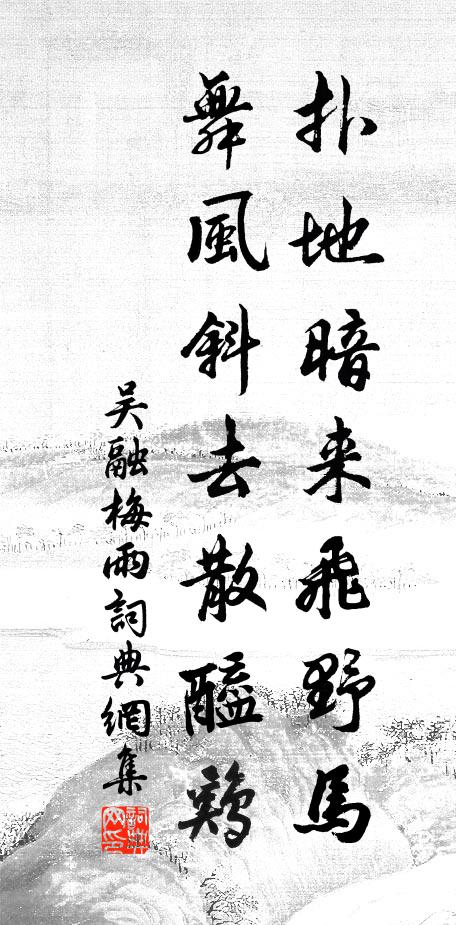 扑地暗来飛野馬
舞風斜去散醯鶏
吴融梅雨詞典網集